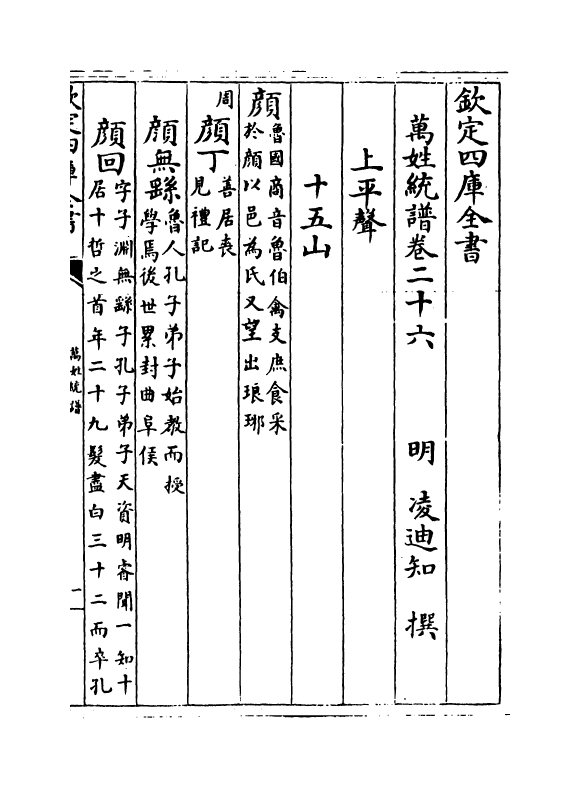 欽定四庫全書
萬姓統譜卷二十六
明 凌迪知 撰
上平聲
十五山
顔
魯國商音魯伯禽支庶食采
於顔以邑為氏又望出琅琊
周
顔丁
善居喪
見禮記
顔無繇
魯人孔子弟子始教而授
學焉後世累封曲阜侯
顔回
字子淵無繇子孔子弟子天資明睿聞一知十
居十哲之首年二十九髮盡白三十二而卒孔
欽定四庫全書
萬姓統譜
一